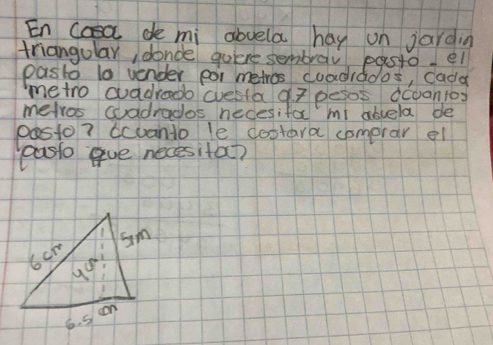 En casa de mi abuela hay un jardin
triangular, donde quiere sembrar pasto. el
pasto lo vender por metros cuadrados, cada
metro cuadrado cuesta 97 pesos ¿cuantos
metros cuadrados necesita mi abuela de
pasto? ¿cuanto le costara comprar el
pasto que necesita?
6 cm
4 cm
5m
6.5 cm